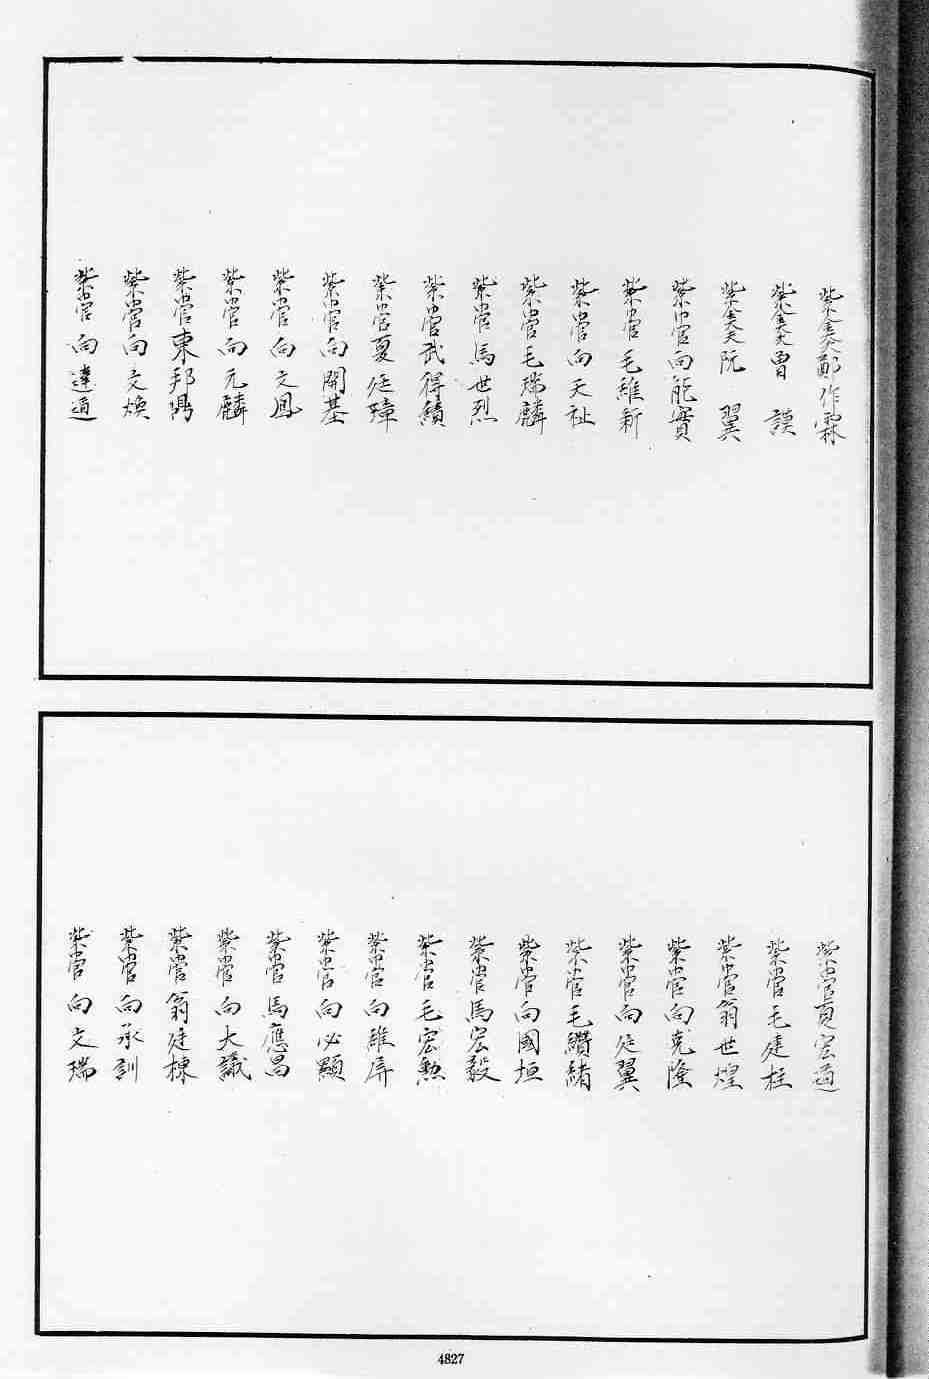 紫金大夫鄭作霖
紫金大夫曾謨
紫金大夫阮翼
紫巾官向能實
紫巾官毛維新
紫巾官向天祉
紫巾官毛瑞麟
紫巾官馬世烈
紫巾官武得績
紫巾官夏廷璋
紫巾官向開基
紫巾官向文鳳
紫巾官向元麟
紫巾官東邦鼎
紫巾官向文煥
紫巾官向達道
紫巾官貢宏道
紫巾官毛廷柱
紫巾官翁世煌
紫巾官向克隆
紫巾官向廷翼
紫巾官毛纘緒
紫巾官向國垣
紫巾官馬宏毅
紫巾官毛宏勲
紫巾官向維屏
紫巾官向必顯
紫巾官馬應昌
紫巾官向大議
紫巾官翁廷棟
紫巾官向承訓
紫巾官向文瑞
4827